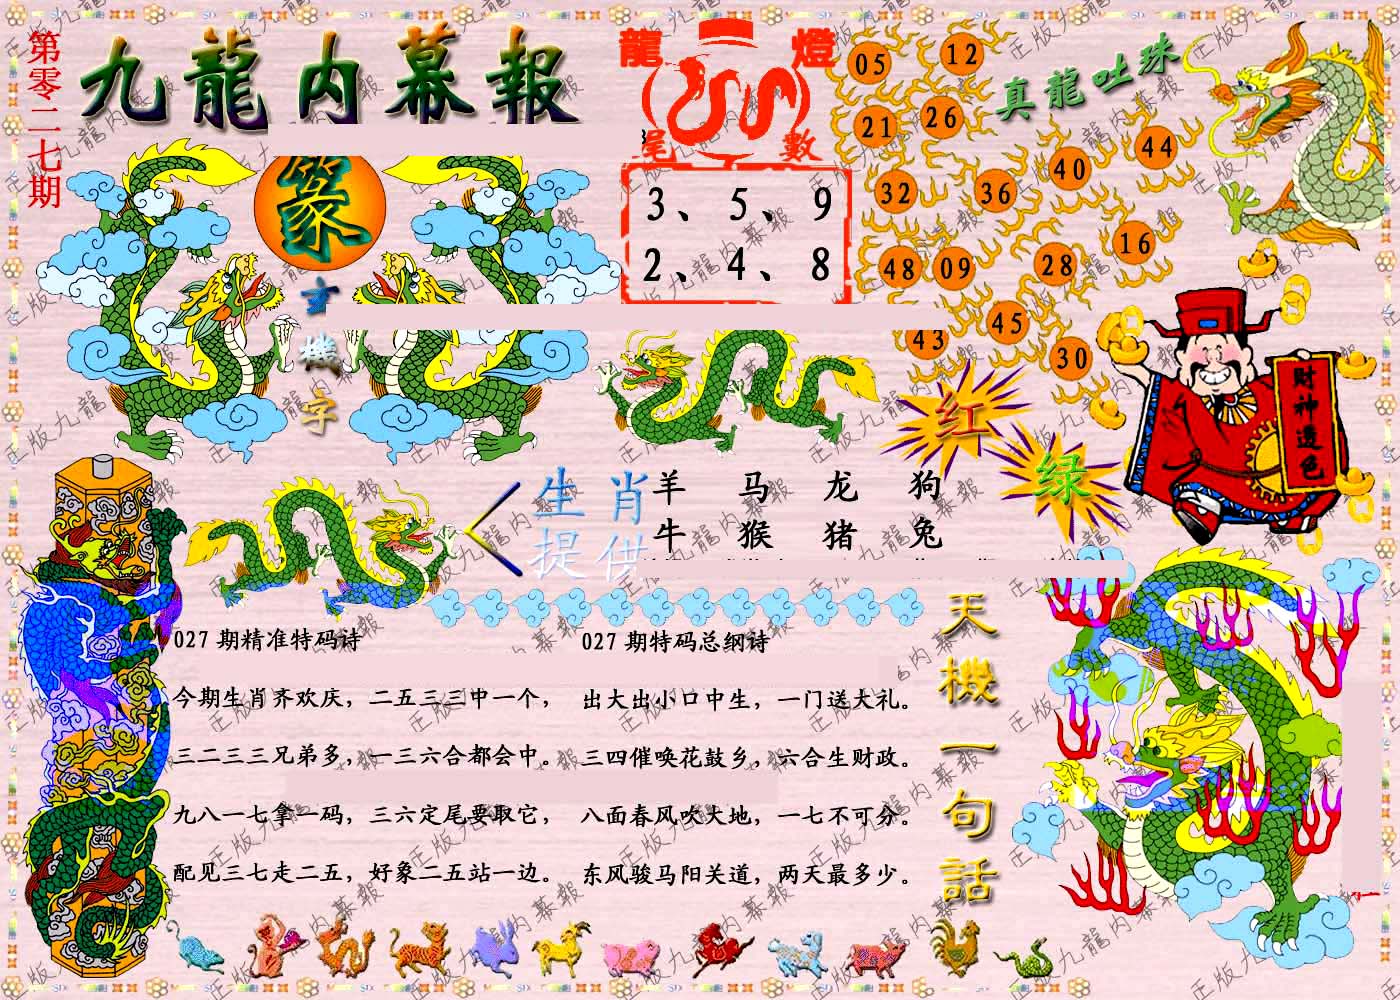 第零二七期
九龍内幕報
龍燈
尾數
3、5、9
2、4、8
真龍吐珠
05
12
21
26
44
40
32
36
16
48
09
28
43
45
30
篆
玄機字
财神透色
红
绿
生肖
提供
羊 马 龙 狗
牛 猴 猪 兔
027期精准特码诗
今期生肖齐欢庆，二五三三中一个，
三二三三兄弟多，一三六合都会中。
九八一七拿一码，三六定尾要取它，
配见三七走二五，好象二五站一边。
027期特码总纲诗
出大出小口中生，一门送大礼。
三四催唤花鼓乡，六合生财政。
八面春风吹大地，一七不可分。
东风骏马阳关道，两天最多少。
天機一句話
正版九龍内幕報